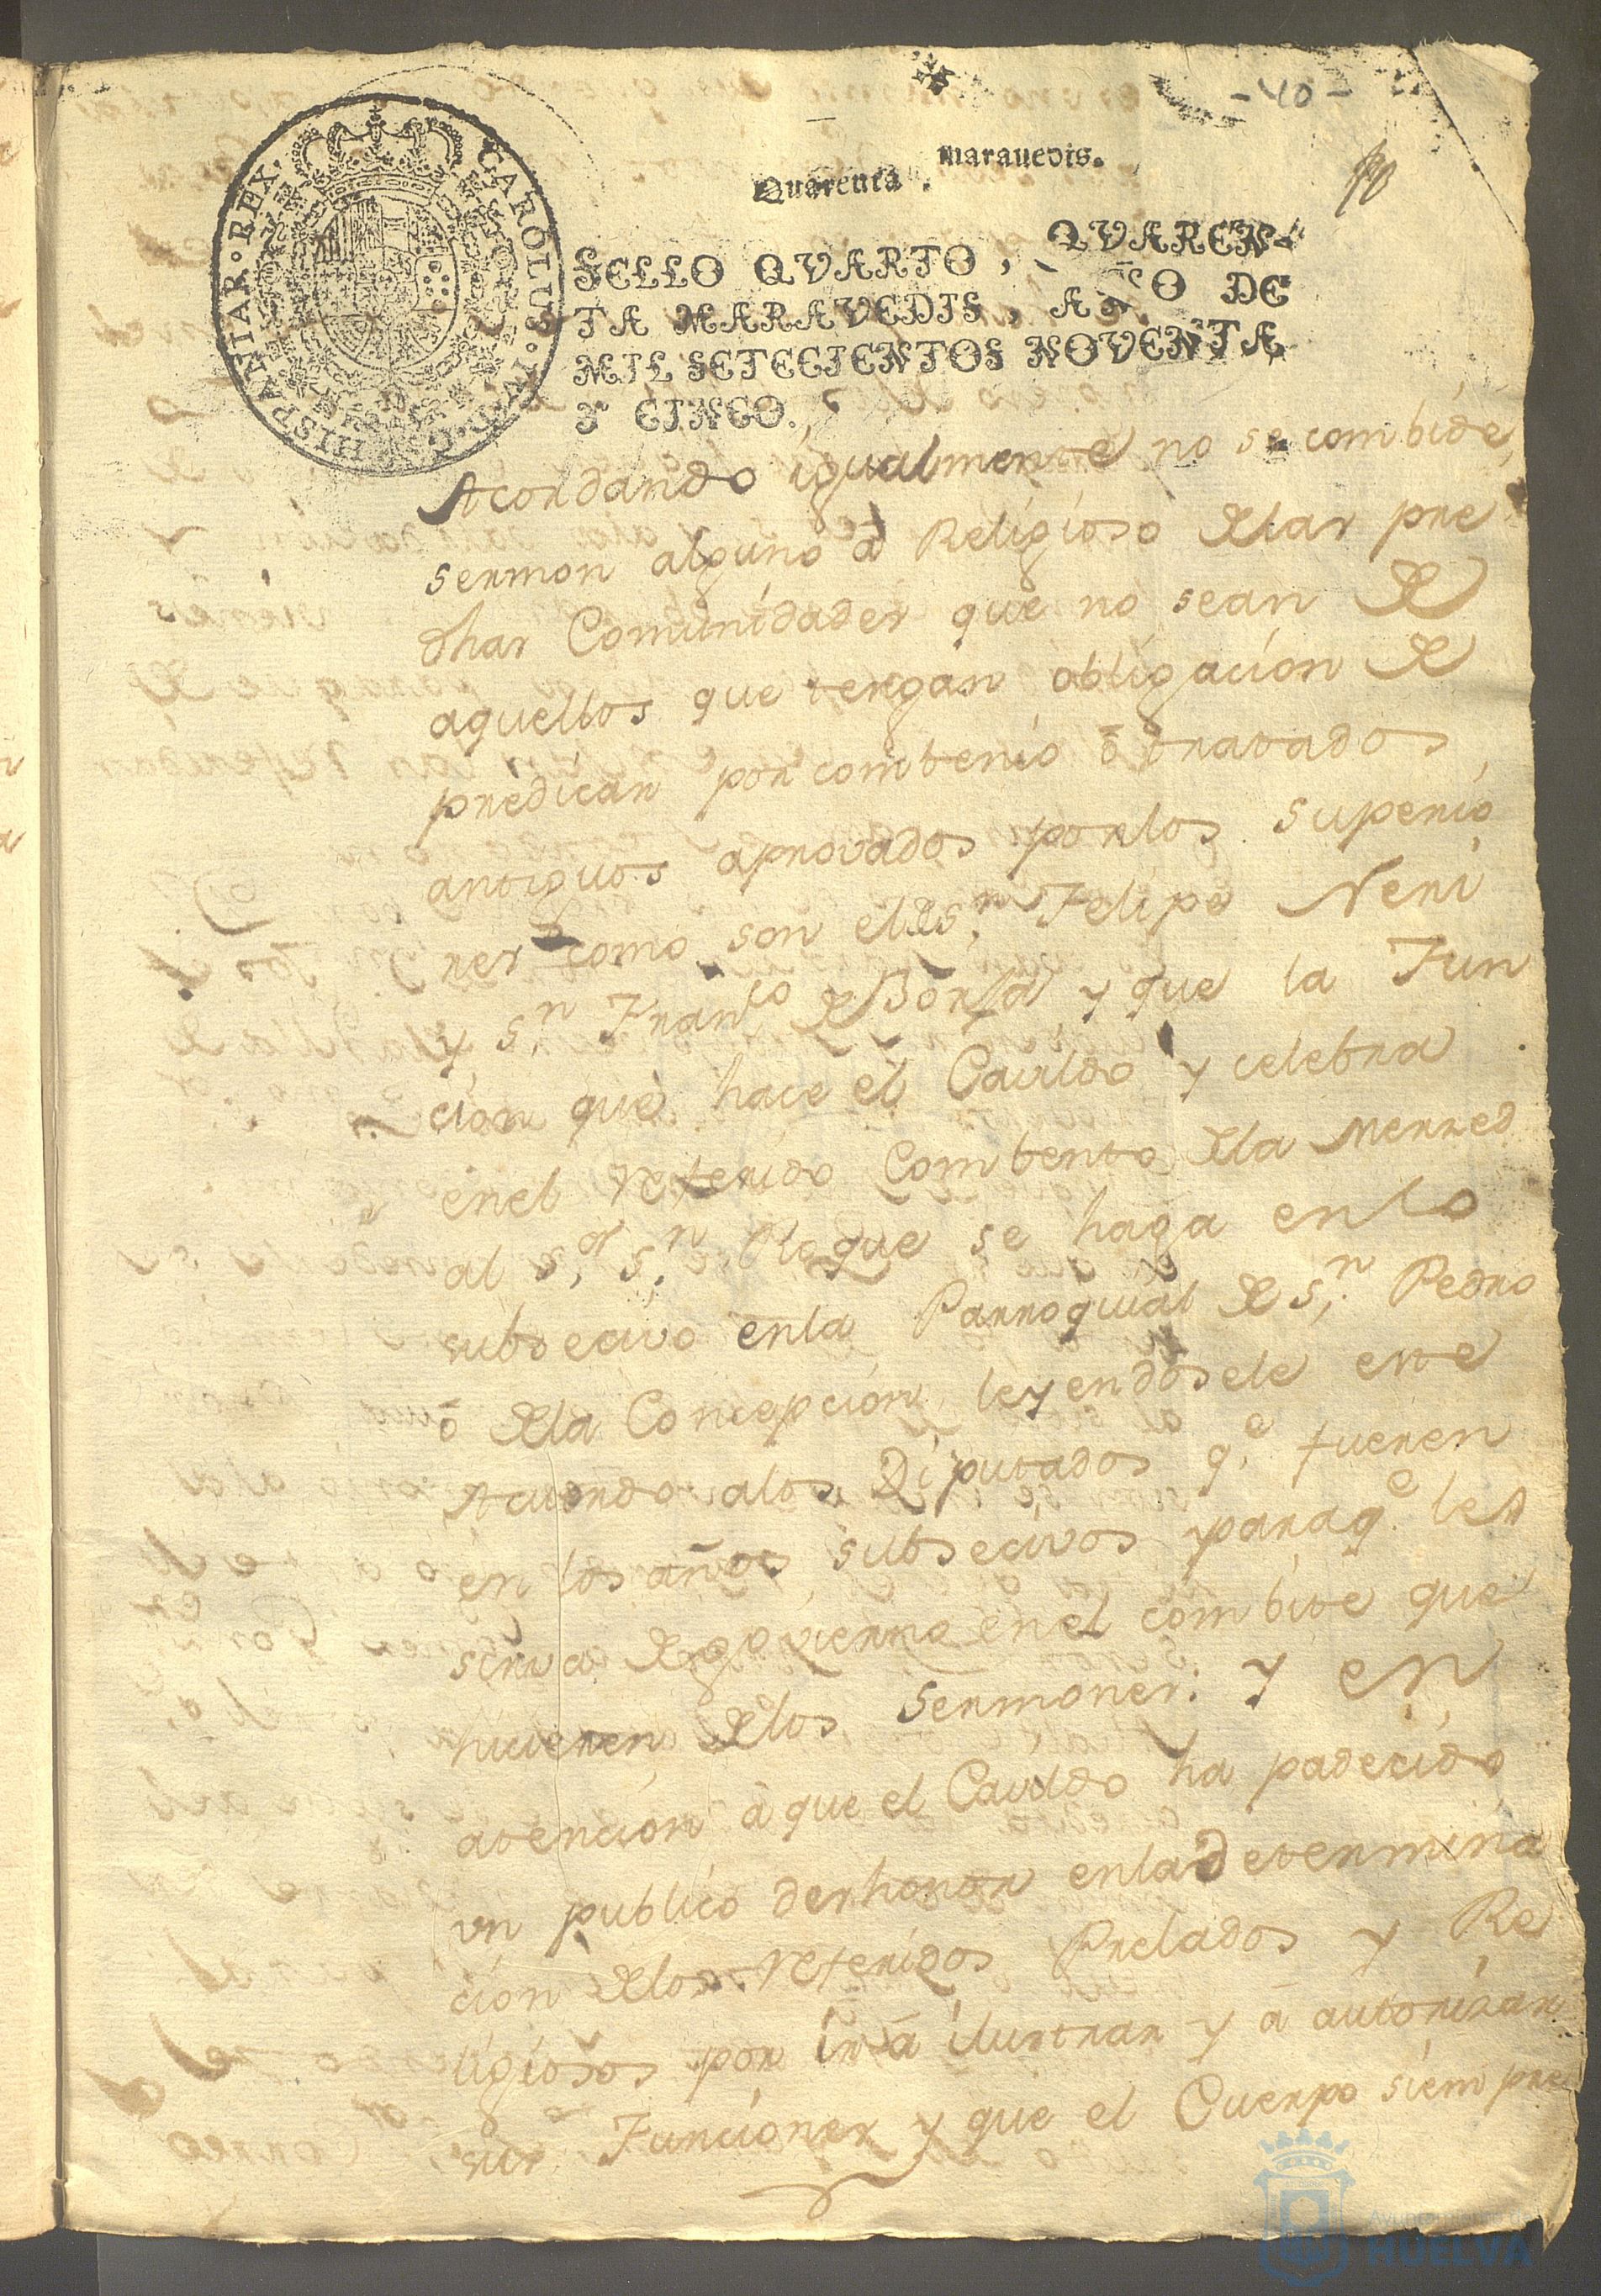 - 40 -
40
Quarenta marauedis.
SELLO QVARTO, QVAREN-
TA MARAVEDIS, AÑO DE
MIL SETECIENTOS NOVENTA
Y CINCO.
CAROLUS · IV · D · G · HISPANIAR · REX ·
Acordando igualmente no se combide
sermon alguno â Religioso de las pre
dhas Comunidades que no sean de
aquellos que tengan obligacion de
predicar por combenio ô tratados
antiguos aprovados por los superio
res como son el de Sn. Felipe Neri
y Sn. Franco de Borja y que la Fun
cion que hace el Cavildo y celebra
en el referido Combento de la Merzed
al Sor. Sn. Roque se haga en lo
subsecivo en la Parroquial de Sn. Pedro
ô de la Concepcion leyendosele este
Acuerdo a los Diputados qe. fueren
en los años subsecivos para qe. les
sirva de govierno en el combite que
hicieren de los sermones: y en
atencion â que el Cavildo ha padecido
un publico deshonor en la determina
cion de los referidos Prelados y Re
ligiosos por ir â ilustrar y â autorizar
sus Funciones y que el Cuerpo siempre
Ayuntamiento de
HUELVA